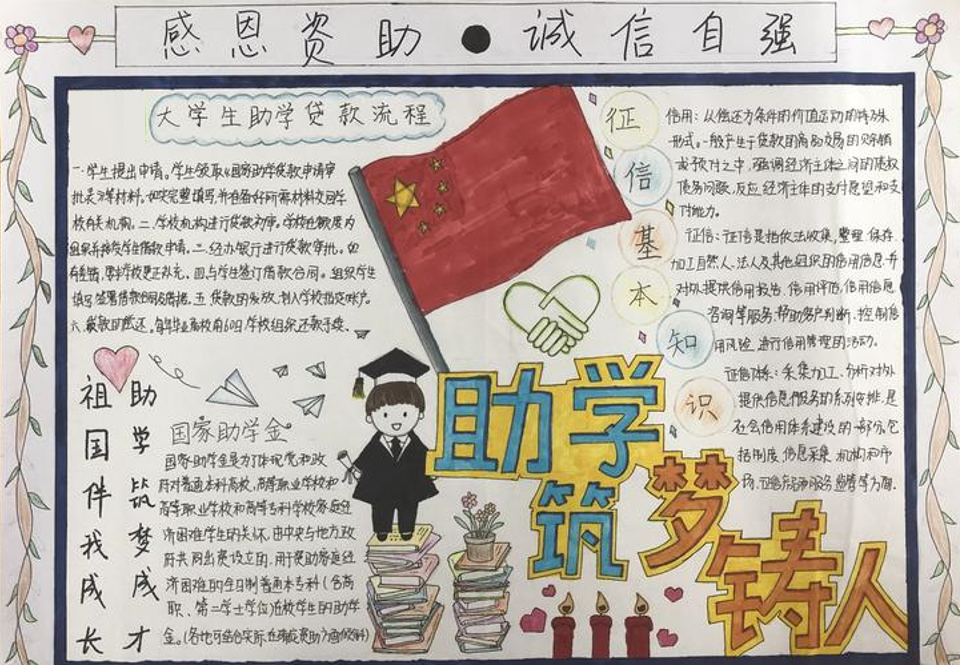 感恩资助●诚信自强
大学生助学贷款流程
一.学生提出申请。学生领取国家助学贷款申请审
批表等材料,如实完整填写,并准备好所需材料交回学
校有关机构。二.学校机构进行贷款初审。学校在额度内
组织并接受学生借款申请。三.经办银行进行贷款审批。如
有差错,要求学校更正补充。四.与学生签订借款合同。组织学生
填写签署借款合同与借据。五.贷款的发放,划入学校指定账户。
六.贷款的偿还。每年毕业离校前60日,学校组织还款手续。
征信基本知识
信用:从偿还为条件的价值运动的特殊
形式。一般产生于贷款的商品交易的赊销
或预付之中,强调经济主体之间的债权
债务问题,反应经济主体的支付愿望和支
付能力。
征信:征信是指依法收集、整理、保存、
加工自然人、法人及其他组织的信用信息,并
对外提供信用报告、信用评估、信用信息
咨询等服务,帮助客户判断、控制信
用风险,进行信用管理的活动。
征信体系:采集加工、分析对外
提供信息服务的系列安排,是
社会信用体系建设的一部分,包
括制度、信息采集、机构和市
场、
祖国伴我成长
助学筑梦成才
国家助学金
国家助学金是为了体现党和政
府对普通本科高校、高等职业学校和
高等职业学校和高等专科学校家庭经
济困难学生的关怀,由中央与地方政
府共同出资设立的,用于资助家庭经
济困难的全日制普通本专科(含高
职、第二学士学位)在校学生的助学
金。(各地可结合实际,
助学
筑梦
铸人